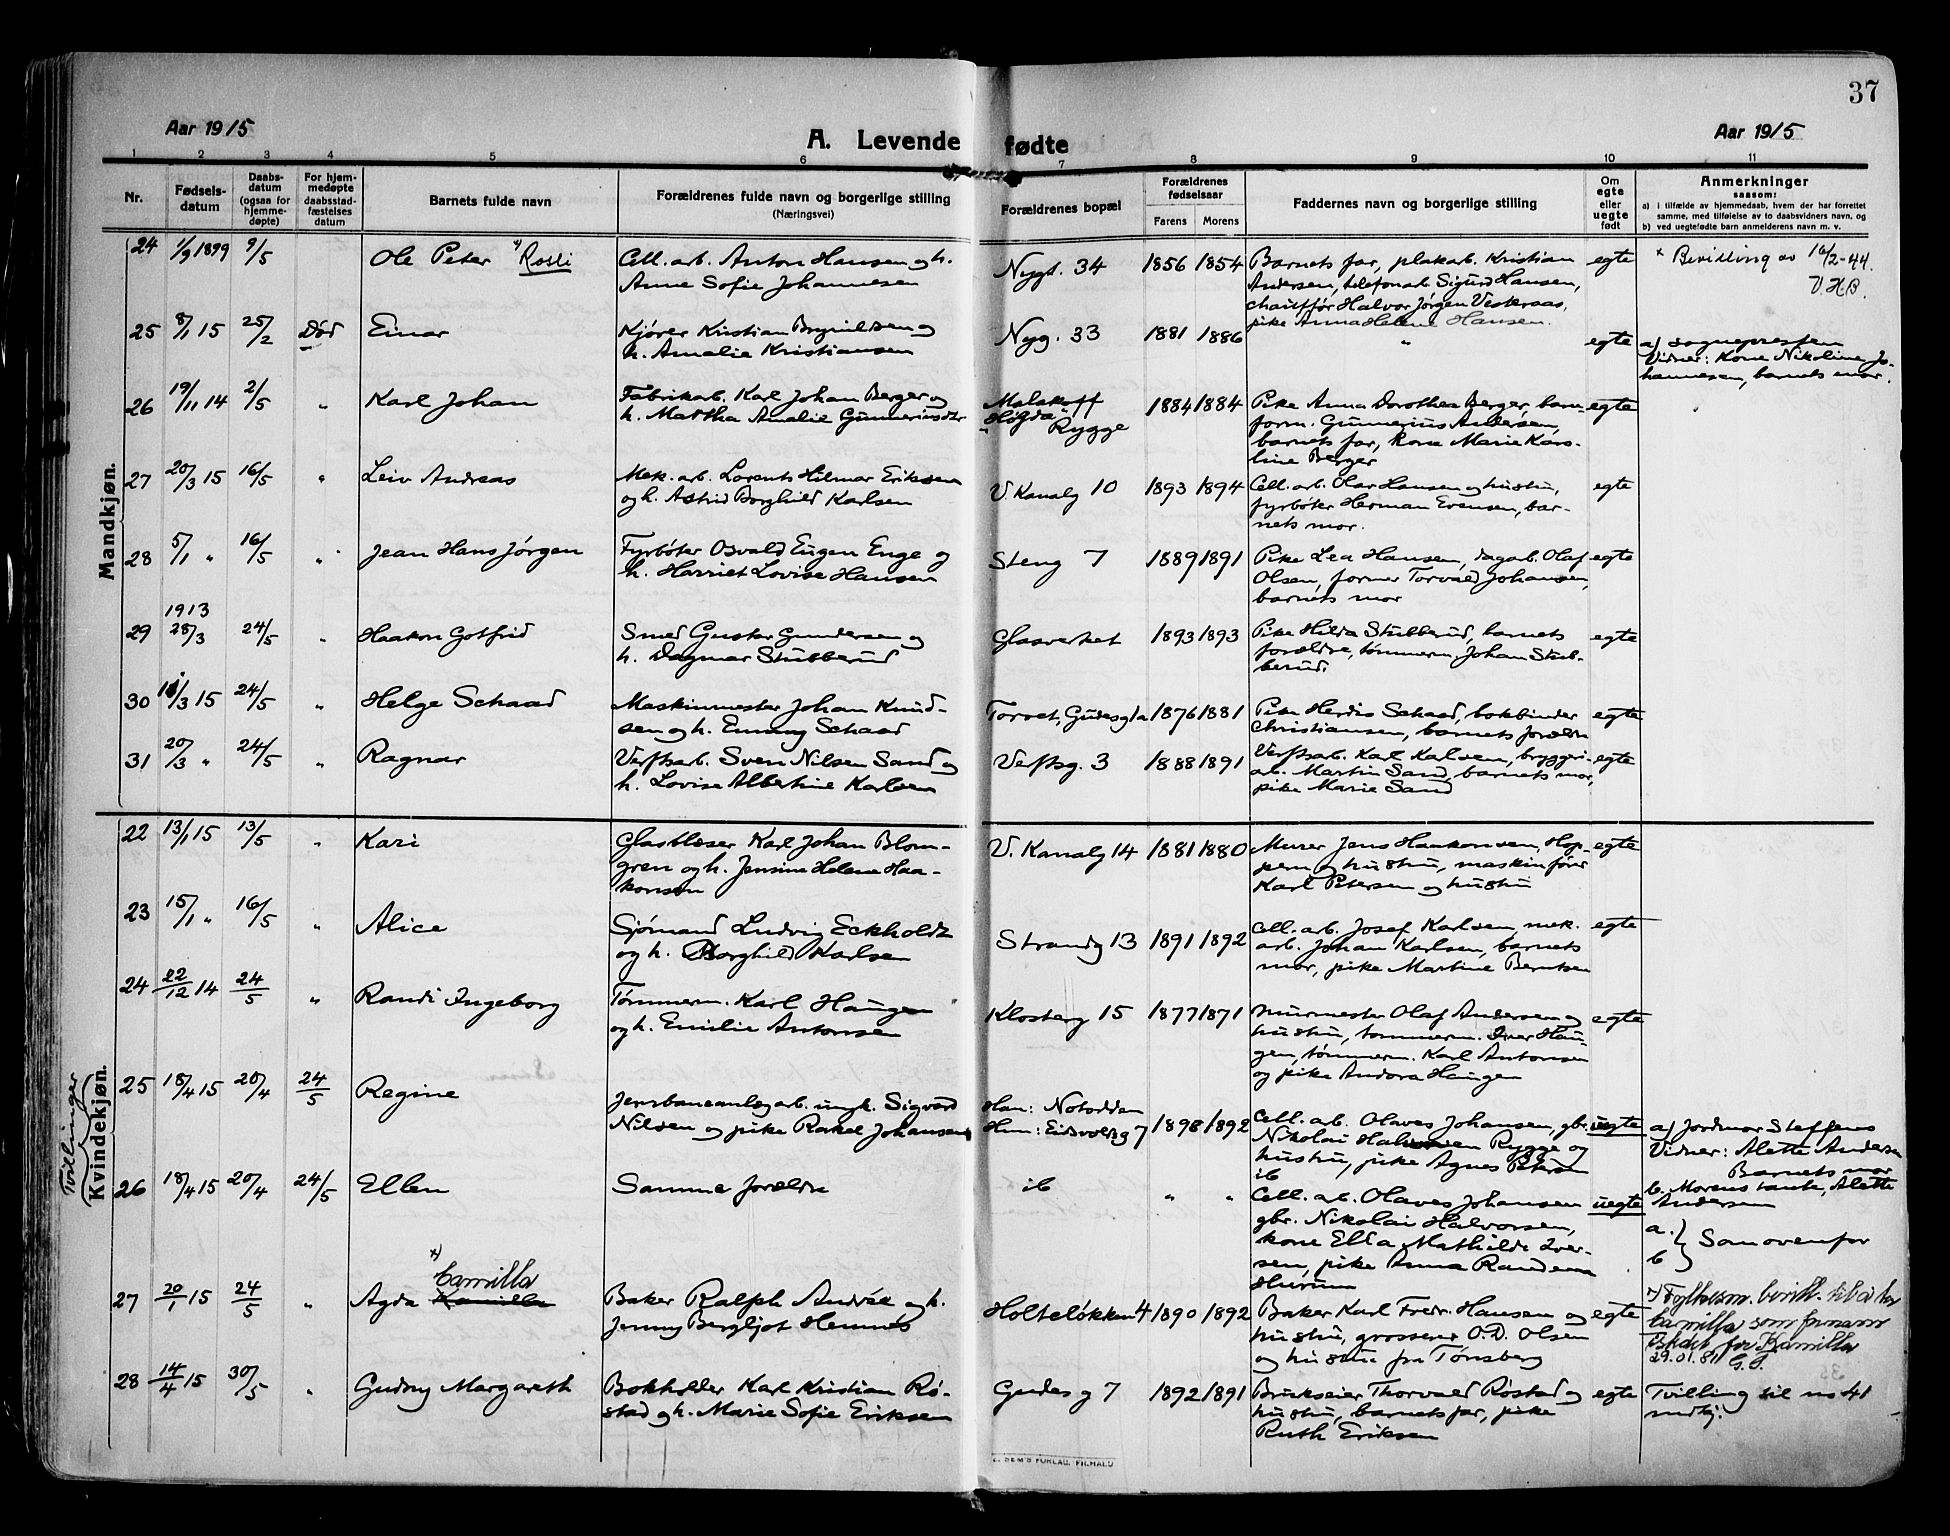 37
Aar 1915
A. Levende fødte
Aar 1915
1 2 3 4 5 6 7 8 9 10 11
Nr.
Fødsels-
datum
Daabs-
datum
(ogsaa for
hjemme-
døpte)
For hjem-
medøpte
daabsstad-
fæstelses
datum
Barnets fulde navn
Forældrenes fulde navn og borgerlige stilling
(Næringsvei)
Forældrenes bopæl
Forældrenes
fødselsaar
Farens Morens
Faddernes navn og borgerlige stilling
Om
egte
eller
uegte
født
Anmerkninger
saasom:
a) i tilfælde av hjemmedaab, hvem der har forrettet
samme, med tilføielse av to daabsvidners navn, og
b) ved uegtefødte barn anmelderens navn m. v.
Mandkjøn.
24 1/9 1899 9/5 Ole Peter
Cell. arb. Anton Hansen og h.
Anne Sofie Johannesen
Nygt. 34 1856 1854
Barnets far, plakab. Kristian
Andersen, telefonab. Sigurd Hansen,
chauffør Halvor Jørgen
pike Anna Helene Hansen.
egte
x Bevilling av 16/2-44.
V.H.B.
25 8/1 15 25/2 Død Einar
Kjører Kristian Brynildsen og
h. Amalie Kristiansen
Nyg. 33 1881 1886 " egte
a) sognepresten
Vidner: Kone Nikoline Jo-
hannesen, barnets mor.
26 19/11 14 2/5 " Karl Johan
Fabrikab. Karl Johan Berger og
h. Martha Amalie Gunneriusdtr
Malakoff
Rygge
1884 1884
Pike Anna Dorothea Berger,
form. Gunnerius Andersen,
barnets far, kone Marie Karo-
line Berger
egte
27 20/3 15 16/5 " Leiv Andreas
Mek. arb. Lorents Hilmar Eriksen
og h. Astrid Borghild Karlsen
V. Kanalg 10 1893 1894
Cell. arb. Olav Hansen og hustru,
fyrbøter Herman Evensen, bar-
nets mor.
egte
28 5/1 " 16/5 " Jean Hans Jørgen
Fyrbøter Osvald Eugen Enge og
h. Harriet Lovise Hansen
Steng 7 1889 1891
Pike Lea Hansen, dagab. Olaf
Olsen, former Torvald Johansen,
barnets mor
egte
29 1913 28/3 24/5 " Haakon Gotfrid
Smed Gustav Gundersen og
h. Dagmar Stubberud
Glasverket 1893 1893
Pike Hilda Stubberud, barnets
forældre, tømmerm. Johan Stub-
berud.
egte
30 /3 15 24/5 " Helge Schaad
Maskinmester Johan Knud-
sen og h. Emmy Schaad
Torvet, Gudesg 1a 1876 1881
Pike Herdis Schaad, bokbinder
Christiansen, barnets forældre
egte
31 20/3 " 24/5 " Ragnar
Verftsarb. Sven Nilsen Sand og
h. Lovise Albertine Karlsen
Verftsg. 3 1888 1891
Verftsarb. Karl Karlsen, bryggeri-
ab. Martin Sand, barnets mor,
pike Marie Sand
egte
Kvindekjøn.
22 13/1 15 13/5 " Kari
Glasblæser Karl Johan Blom-
gren og h. Jensine Helene Haa-
konsen
V. Kanalg 14 1881 1880
Murer Jens Haakonsen, Hop-
pern og hustru, maskinfører
Karl Petersen og hustru
egte
23 15/1 " 16/5 " Alice
Sjømand Ludvig Eckholdt
og h. Borghild Karlsen
Strandg 13 1891 1892
Cell. arb. Josef Karlsen, mek.
arb. Johan Karlsen, barnets
mor, pike Martine Berntsen
egte
24 22/12 14 24/5 " Randi Ingeborg
Tømmerm. Karl Haugen
og h. Emilie Antonsen
Klosterg 15 1877 1871
Murmester Olaf Andersen og
hustru, tømmerm. Iver Hau-
gen, tømmerm. Karl Antonsen
og pike Andora Haugen
egte
Tvillinger
25 18/4 15 20/4 24/5 Regine
Jernbaneanlægarb. ungk. Sigvard
Nilsen og pike Rakel Johansen
Han: Notodden
Hun: Eidsvoldsg 7
1898 1892
Cell. arb. Olaves Johansen, gbr.
Nikolai Halvorsen Rygge og
hustru, pike Agnes
uegte
a) Jordmor Steffens
Vidner: Alette Andersen
Barnets mor
b. Morens tante, Alette
Andersen
26 18/4 15 20/4 24/5 Ellen
Samme forældre
ib " "
ib
Cell. arb. Olaves Johansen
gbr. Nikolai Halvorsen,
kone Ella Mathilde Iver-
sen, pike Anna Randema
Hurum
uegte
a. } Som ovenfor
b }
27 20/1 15 24/5 " Agda Kamilla
x) Camilla
Baker Ralph Andrée og h.
Jenny Bergljot Hennes
Holteløkken 4 1890 1892
Baker Karl Fredr. Hansen og
hustru, grosserer O.D. Olsen
og hustru fra Tønsberg
egte
x) Fylkesm. bevill. til å ha
Camilla som fornavn
istedet for Kamilla
29.01.81 G.S.
28 14/4 15 30/5 " Gudny Margareth
Bokholder Karl Kristian Rø-
stad og h. Marie Sofie Eriksen
Gudes g 7 1892 1891
Brukseier Thorvald Røstad og
hustru, barnets far, pike
Ruth Eriksen
egte
Tvilling til no 41
mdkj.
E. SEM'S FORLAG, FR.HALD